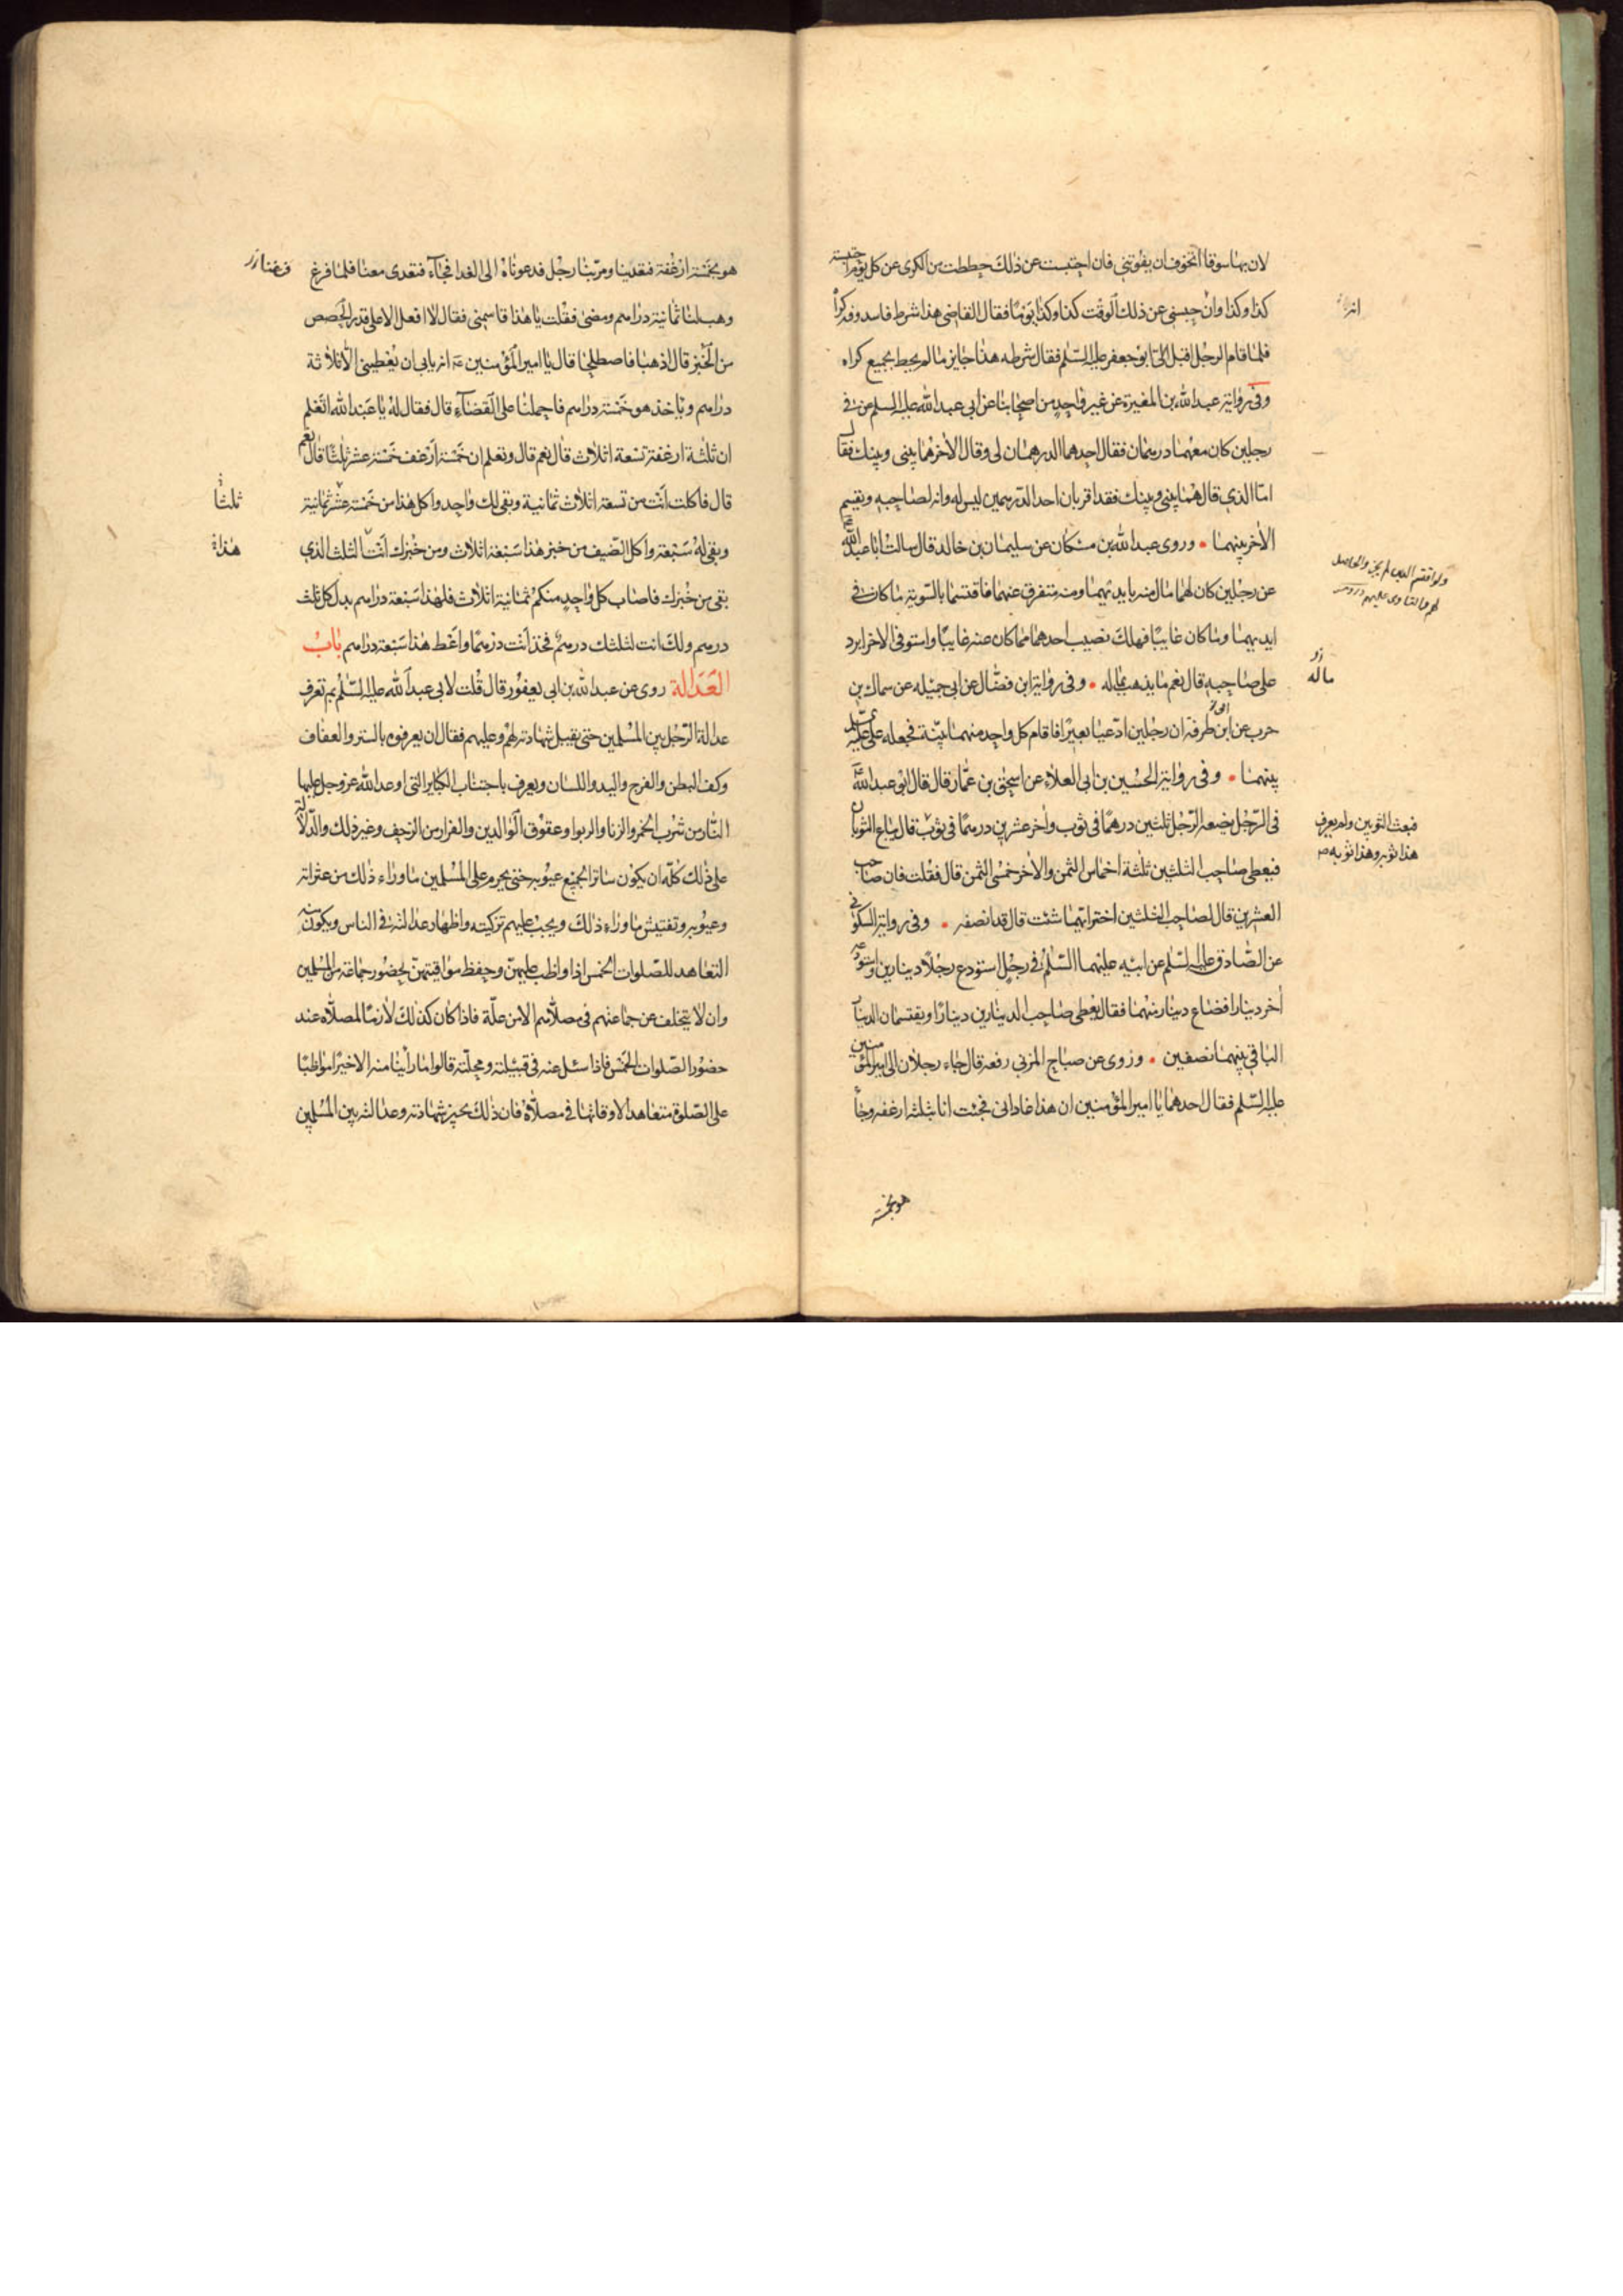 لان بها سوقا اتخوف ان يفوتني فان احتبست عن ذلك حططت من الكرى عن كل يوم احتبسته
كذا وكذا وان حبسني عن ذلك الوقت كذا وكذا يوما فقال القاضي هذا شرط فاسد وفه كراه
فلما قام الرجل اقبل الىّ ابو جعفر عليه السلم فقال شرطه هذا جايز ما لم يحط بجميع كراه
وفي رواية عبد الله بن المغيرة عن غير واحد من اصحابنا عن ابي عبد الله عليه السلم في
رجلين كان معهما درهمان فقال احدهما الدرهمان لى وقال الاخر هما بيني وبينك فقال
امّا الذي قال هما بيني وبينك فقد اقر بان احد الدرهمين ليس له وانه لصاحبه ويقسم
الاخر بينهما وروى عبد الله بن مسكان عن سليمان بن خالد قال سالت ابا عبد الله
عن رجلين كان لهما مال منه بايديهما ومنه متفرق عنهما فاقتسما بالسّوية ما كان في
ايديهما وما كان غايبًا فهلك نصيب احدهما مما كان عنه غايبًا واستوفى الاخر ايرد
على صاحبه قال نعم ما يذهب بماله وفي رواية ابن فضّال عن ابي جميله عن سماك بن
حرب عن ابن طرفة ان رجلين ادّعيا بعيرًا فاقام كل واحد منهما بيّنة فجعله علي عليه السلم
بينهما وفي رواية الحسين بن ابي العلاء عن اسحق بن عمّار قال قال ابو عبد الله
في الرّجل يبضعه الرّجل ثلثين درهمًا في ثوب واخر عشرين درهمًا في ثوب قال يباع الثوبان
فيعطى صاحب الثلثين ثلثة اخماس الثمن والاخر خمسي الثمن قال فقلت فان صاحب
العشرين قال لصاحب الثلثين اختر ايّهما شئت قال قد انصفه وفي رواية السكوني
عن الصّادق عليه السلم عن ابيه عليهما السّلم في رجل استودع رجلاً دينارين واستودعه
اخر دينارا فضاع دينار منهما فقال يعطى صاحب الدينارين دينارًا ويقتسمان الدينار
الباقي بينهما نصفين وروى عن صباح المزني رفعه قال جاء رجلان الى امير المؤمنين
عليه السّلم فقال احدهما يا امير المؤمنين ان هذا غاداني فجئت انا بثلثة ارغفه وجاء
هو بخمسة
ماله
فبعث الثوبين ولم يعرف
هذا ثوبه وهذا ثوبه
هو بخمسة ارغفة فتغدينا ومرّ بنا رجل فدعوناه الى الغدا فجآء فتغدى معنا فلما فرغ
وهب لنا ثمانية دراهم ومضى فقلت يا هذا قاسمني فقال لا افعل الا على قدر الحصص
من الخبز قال اذهبا فاصطلحا قال يا امير المؤمنين انه يابى ان يعطيني الا ثلاثة
دراهم وياخذ هو خمسة دراهم فاحملنا على القضآء قال فقال له يا عبد الله اتعلم
ان ثلثة ارغفة تسعة اثلاث قال نعم قال وتعلم ان خمسة ارغفه خمسة عشر ثلثًا قال نعم
قال فاكلت انت من تسعة اثلاث ثمانية وبقي لك واحد واكل هذا من خمسة عشر ثمانية
وبقي له سبعة واكل الضيف من خبز هذا سبعة اثلاث ومن خبزك انت الثلث الذي
بقي من خبزك فاصاب كل واحد منكم ثمانية اثلاث فلهذا سبعة دراهم بدل كل ثلث
درهم ولك انت لثلثك درهم فخذ انت درهمًا واعط هذا سبعة دراهم باب
العدالة روى عن عبد الله بن ابي يعفور قال قلت لابي عبد الله عليه السّلم بم تعرف
عدالة الرّجل بين المسلمين حتى يقبل شهادته لهم وعليهم فقال ان يعرفوه بالستر والعفاف
وكف البطن والفرج واليد واللسان ويعرف باجتناب الكباير التي اوعد الله عز وجل عليها
النّار من شرب الخمر والزنا والربوا وعقوق الوالدين والفرار من الزحف وغير ذلك والدّلالة
على ذلك كلّه ان يكون ساترا لجميع عيوبه حتى يحرم على المسلمين ما وراء ذلك من عثراته
وعيوبه وتفتيش ما وراء ذلك ويجب عليهم تزكيته واظهار عدالته في الناس ويكون منه
التعاهد للصّلوات الخمس اذا واظب عليهنّ وحفظ مواقيتهنّ بحضور جماعة من المسلمين
وان لا يتخلف عن جماعتهم في مصلاّهم الا من علّة فاذا كان كذلك لازمًا لمصلاّه عند
حضور الصّلوات الخمس فاذا سئل عنه في قبيلته ومحلّته قالوا ما راينا منه الا خيرًا مواظبًا
على الصّلوة متعاهدا لاوقاتها في مصلاّه فان ذلك يجيز شهادته وعدالته بين المسلمين
ثلثاً